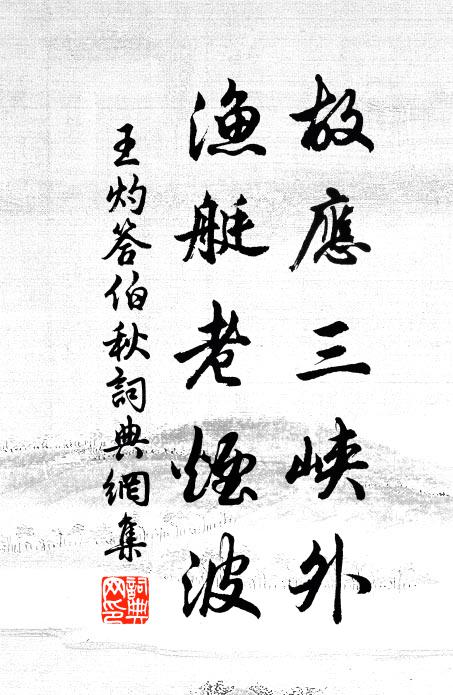 故應三峽外
漁艇老煙波
王灼答伯秋詞典網集
詞典
网印